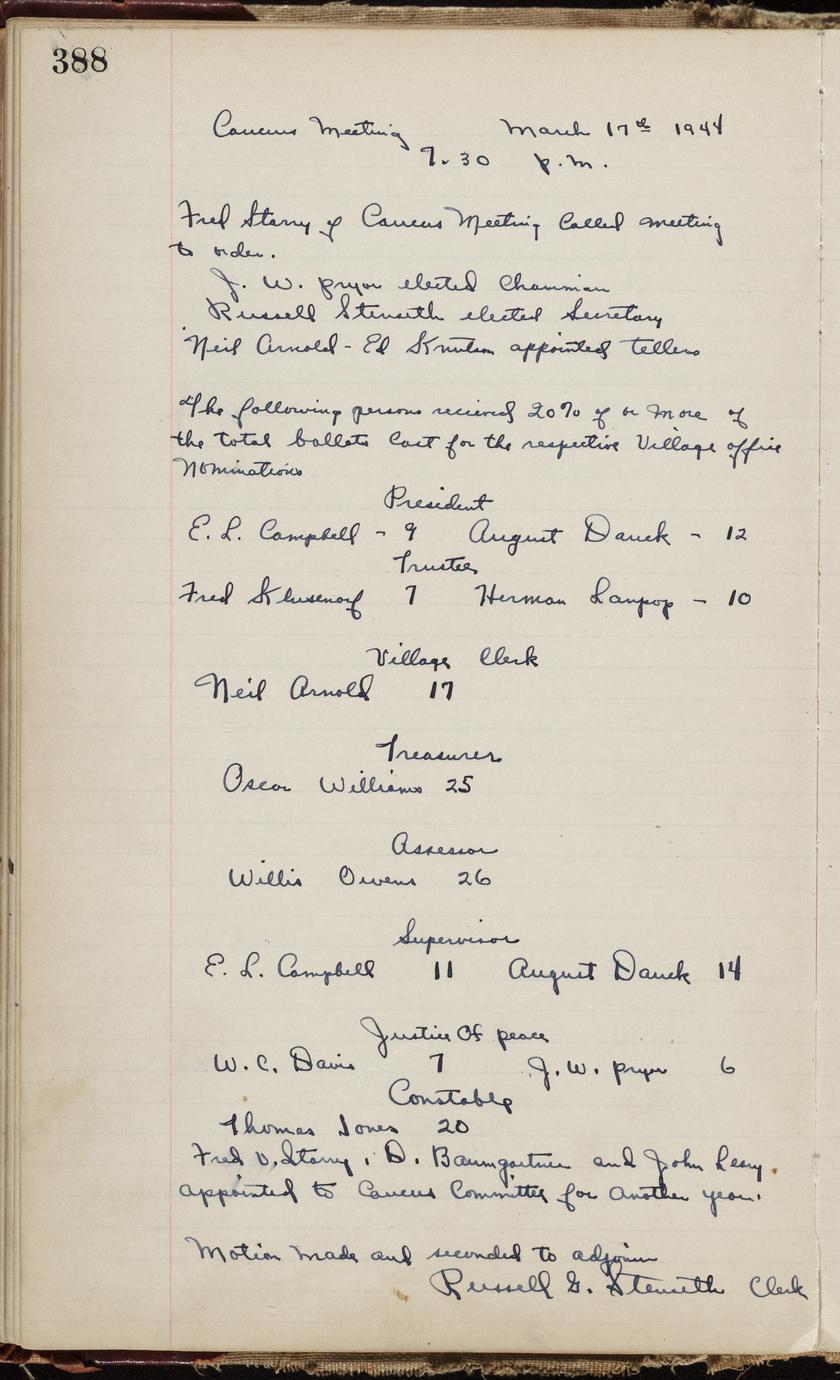 388
Caucus Meeting March 17th 1944
7.30 p.m.
Fred Starry of Caucus Meeting Called meeting
to order.
J. W. pryor elected Chairman
Russell Stenseth elected Secretary
Neil Arnold - Ed Knutson appointed tellers
The following persons recieved 20% of or more of
the total ballots Cast for the respective Village office
Nominations
President
E. L. Campbell - 9 August Dauck - 12
Trustee
Fred 7 Herman - 10
Village Clerk
Neil Arnold 17
Treasurer
Oscar Williams 25
Assessor
Willis Owens 26
Supervisor
E. L. Campbell 11 August Dauck 14
Justice Of peace
W. C. Davis 7 J. W. pryor 6
Constable
Thomas Jones 20
Fred V. Starry, D. Baumgartner and John Leary.
appointed to Caucus Committee for another year.
Motion Made and seconded to adjourn
Russell G. Stenseth Clerk